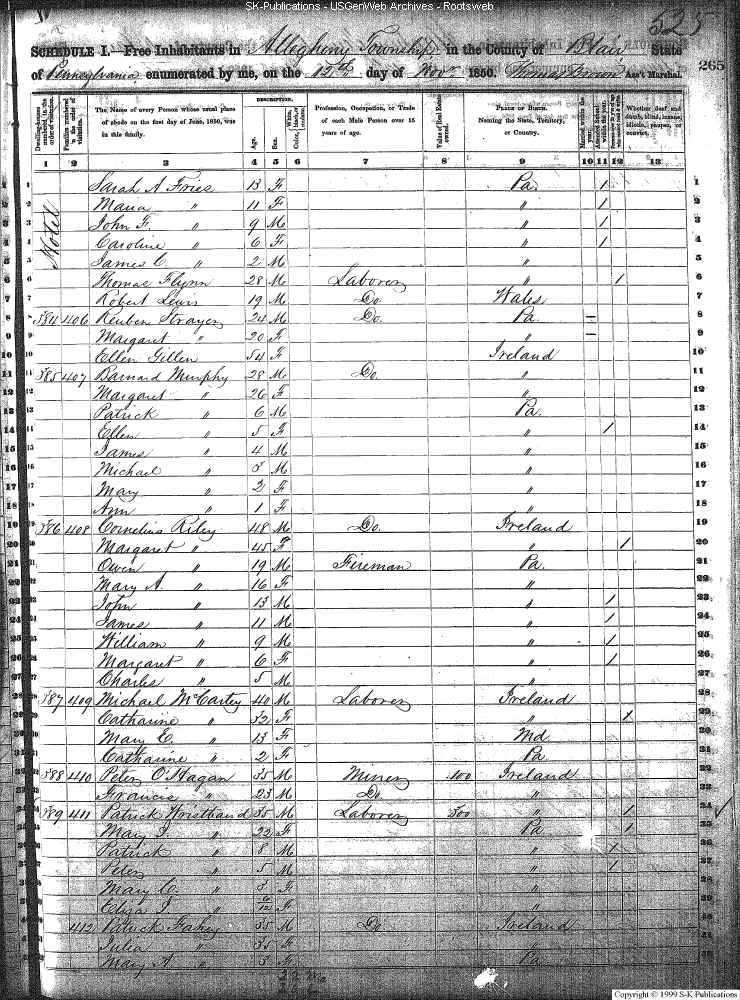 SK-Publications - USGenWeb Archives - Rootsweb
525
SCHEDULE I.—Free Inhabitants in Allegheny Township in the County of Blair State
of Pennsylvania, enumerated by me, on the 12th day of Novr 1850. Thomas Ass't Marshal. 265
Dwelling-houses numbered in the order of visitation.
Families numbered in the order of visitation.
The Name of every Person whose usual place of abode on the first day of June, 1850, was in this family.
DESCRIPTION.
Age.
Sex.
Color, White, black, or mulatto.
Profession, Occupation, or Trade of each Male Person over 15 years of age.
Value of Real Estate owned.
PLACE OF BIRTH. Naming the State, Territory, or Country.
Married within the year.
Attended School within the year.
Persons over 20 y'rs of age who cannot read & write.
Whether deaf and dumb, blind, insane, idiotic, pauper, or convict.
1 2 3 4 5 6 7 8 9 10 11 12 13
Hotel
1 Sarah A Fries 13 F Pa. / 1
2 Maria " 11 F " / 2
3 John F. " 9 M " / 3
4 Caroline " 6 F " / 4
5 James C. " 2 M " 5
6 Thomas Flynn 28 M Laborer " / 6
7 Robert Lewis 19 M Do. Wales 7
8 384 406 Reuben Strayer 24 M Do. Pa. — 8
9 Margaret " 20 F " — 9
10 Ellen Gillen 54 F Ireland 10
11 385 407 Barnard Murphy 28 M Do. " 11
12 Margaret " 26 F " 12
13 Patrick " 6 M Pa. 13
14 Ellen " 5 F " / 14
15 James " 4 M " 15
16 Michael " 3 M " 16
17 Mary " 2 F " 17
18 Ann " 1 F " 18
19 386 408 Cornelius Riley 48 M Do. Ireland 19
20 Margaret " 45 F " / 20
21 Owen " 19 M Fireman Pa. 21
22 Mary A. " 16 F " 22
23 John " 13 M " / 23
24 James " 11 M " / 24
25 William " 9 M " / 25
26 Margaret " 6 F " / 26
27 Charles " 5 M " 27
28 387 409 Michael McCartey 40 M Laborer Ireland 28
29 Catharine " 32 F " x 29
30 Mary E. " 13 F Md. 30
31 Catharine " 2 F Pa 31
32 388 410 Peter O'Hagan 35 M Miner 100 Ireland 32
33 Francis " 23 M Do. " 33
34 389 411 Patrick 35 M Laborer 300 " / 34
35 Mary J. " 22 F Pa / 35
36 Patrick " 8 M " 36
37 Peter " 5 M " / 37
38 Mary C. " 3 F " 38
39 Eliza J. " 6/12 F " 39
40 412 Patrick Fahey 35 M Do. Ireland 40
41 Julia " 35 F " 41
42 Mary A. " 3 F Pa. 42
Copyright © 1999 S-K Publications